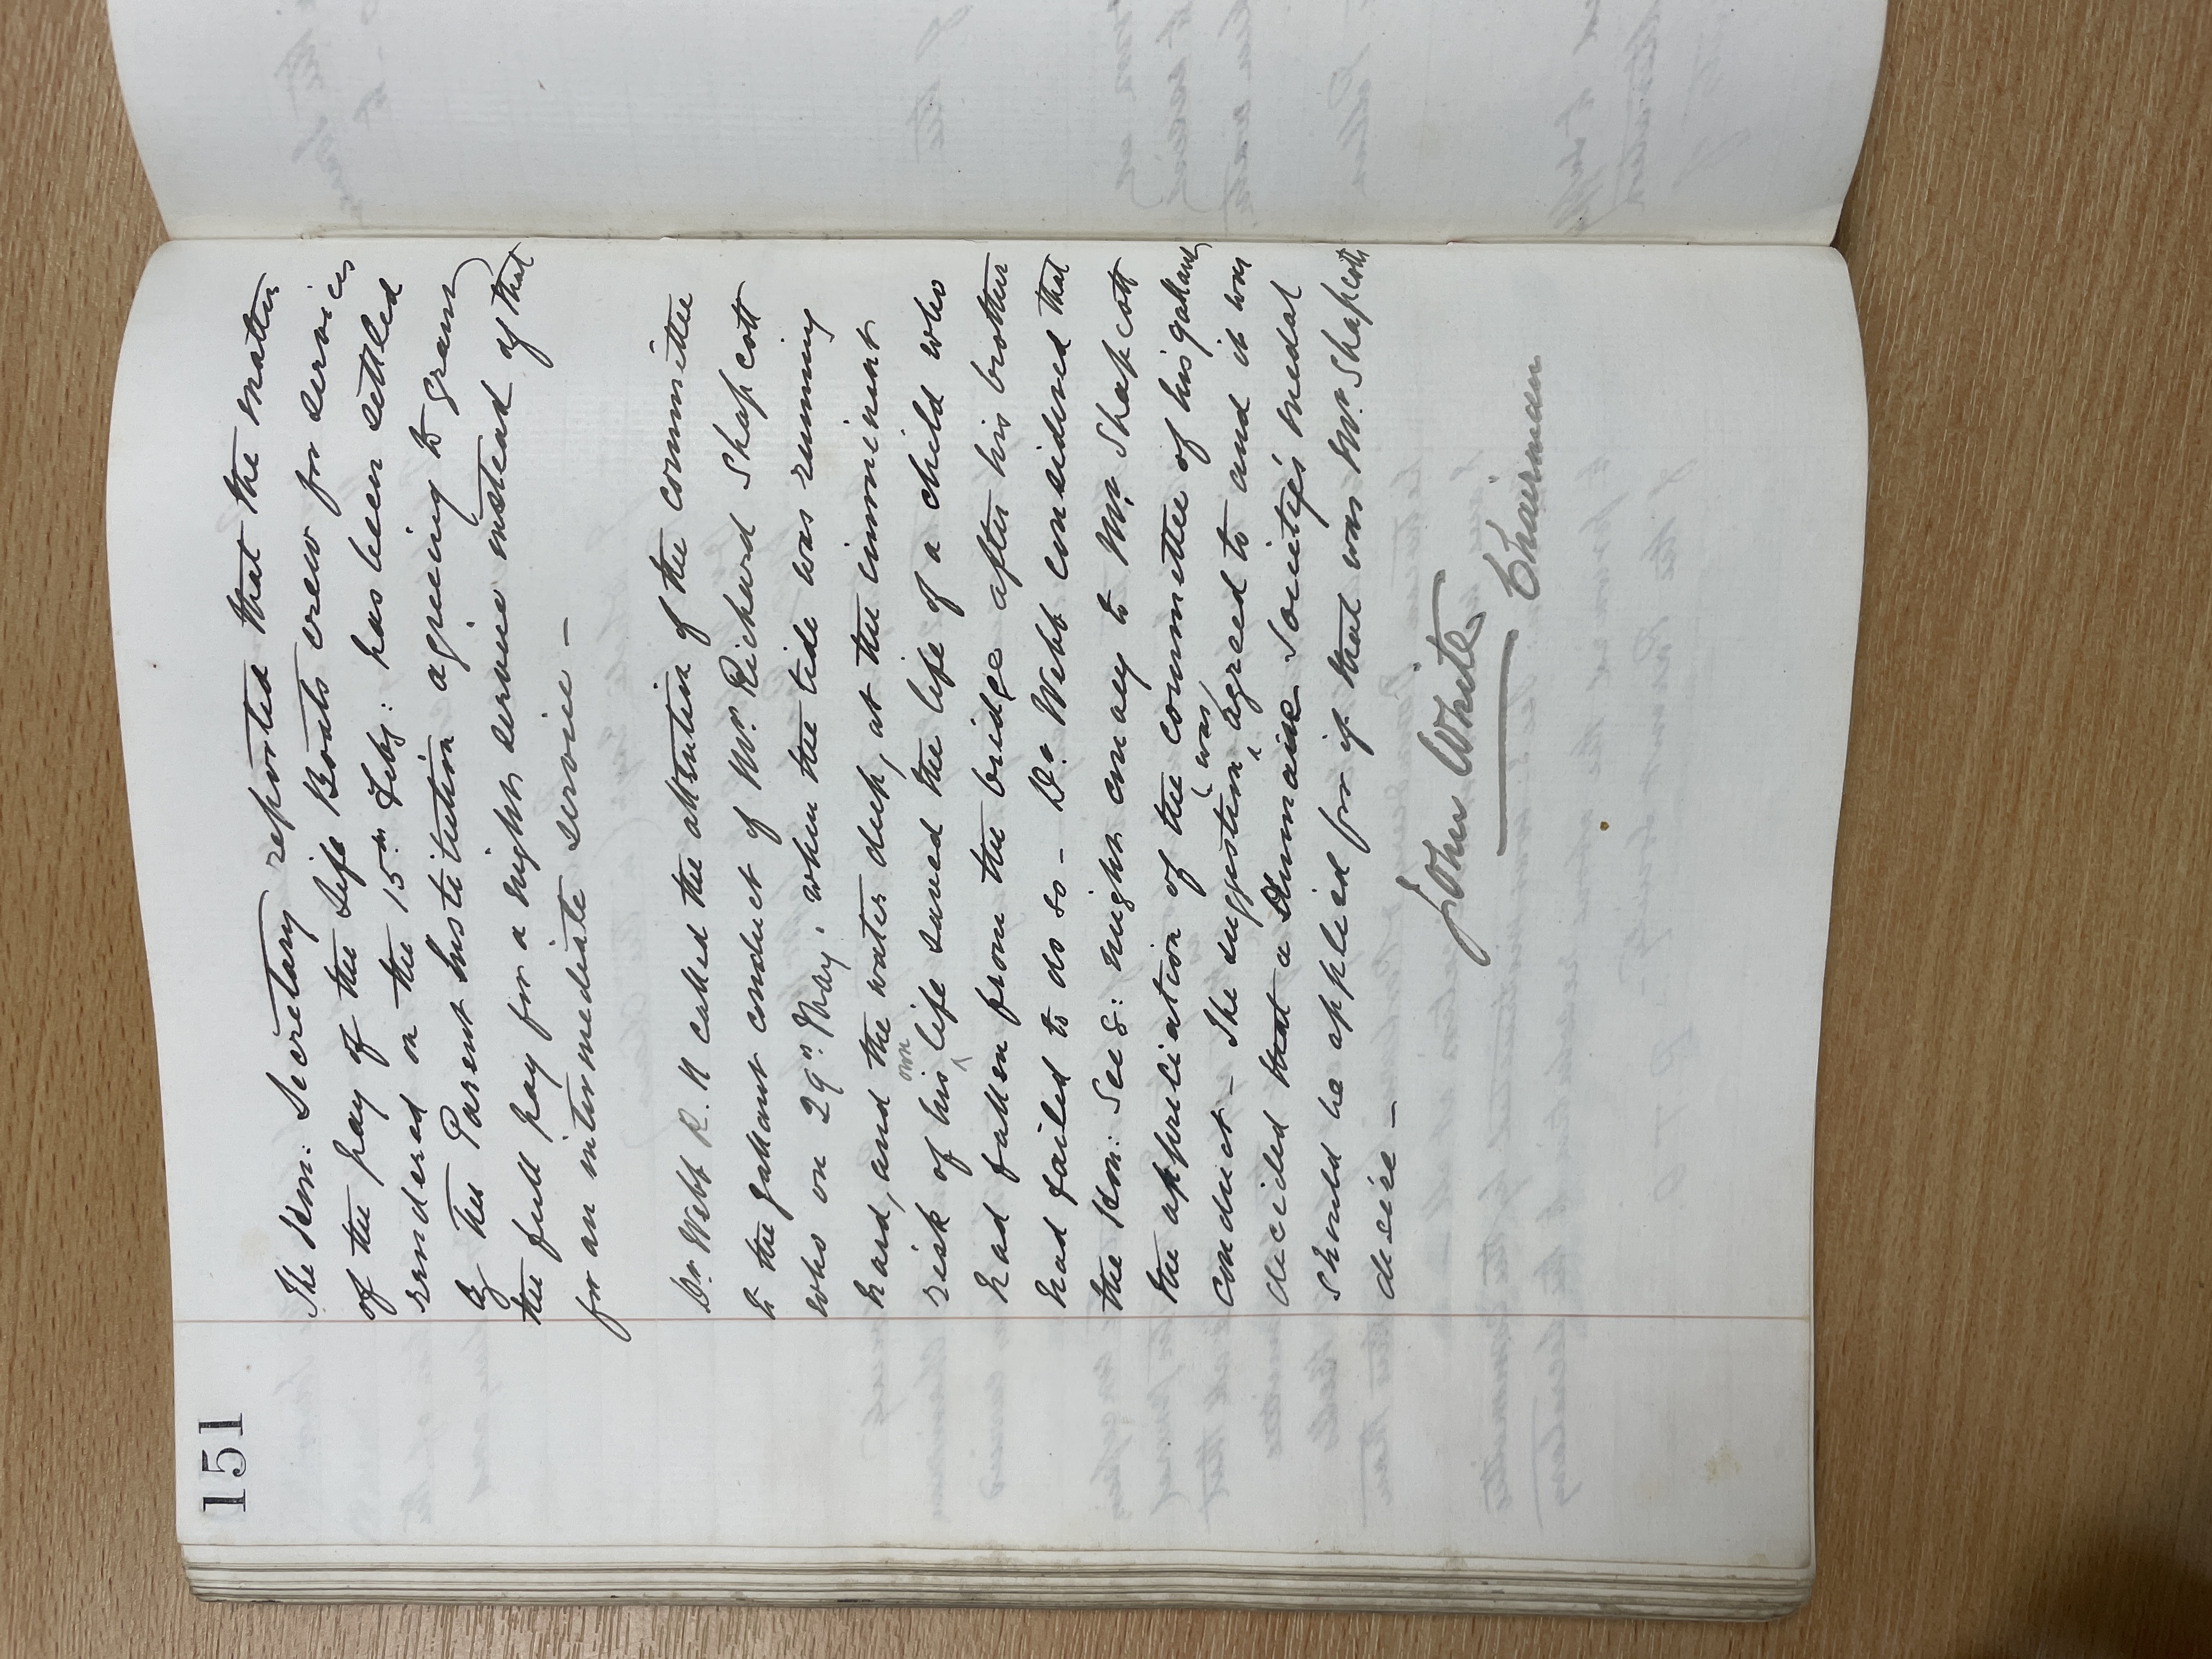 151
The Hon: Secretary reported that the matter
of the pay of the Life Boats crew for services
rendered on the 15th Feby: has been settled
by the Parent Institution agreeing to grant
the full pay for a nights service instead of that
for an intermediate service –
Dr. Webb R.N called the attention of the committee
to the gallant conduct of Mr. Richard Shapcott
who on 29th May, when the tide was running
hard, and the water deep, at the imminent
risk of his own life saved the life of a child who
had fallen from the bridge after his brother
had failed to do so – Dr. Webb considered that
the Hon: Sec: might convey to Mr. Shapcott
the appreciation of the committee of his gallant
conduct – The suggestion was agreed to and it was
decided that a Humaine Society's medal
should be applied for if that was Mr. Shapcotts
desire –
John White
Chairman